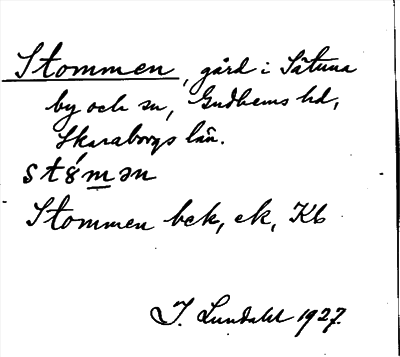 Stommen, gård i Sätuna
by och sn, Gudhems hd,
Skaraborgs län.
stǿmən
Stommen bck, ek, Kb
I. Lundahl 1927.